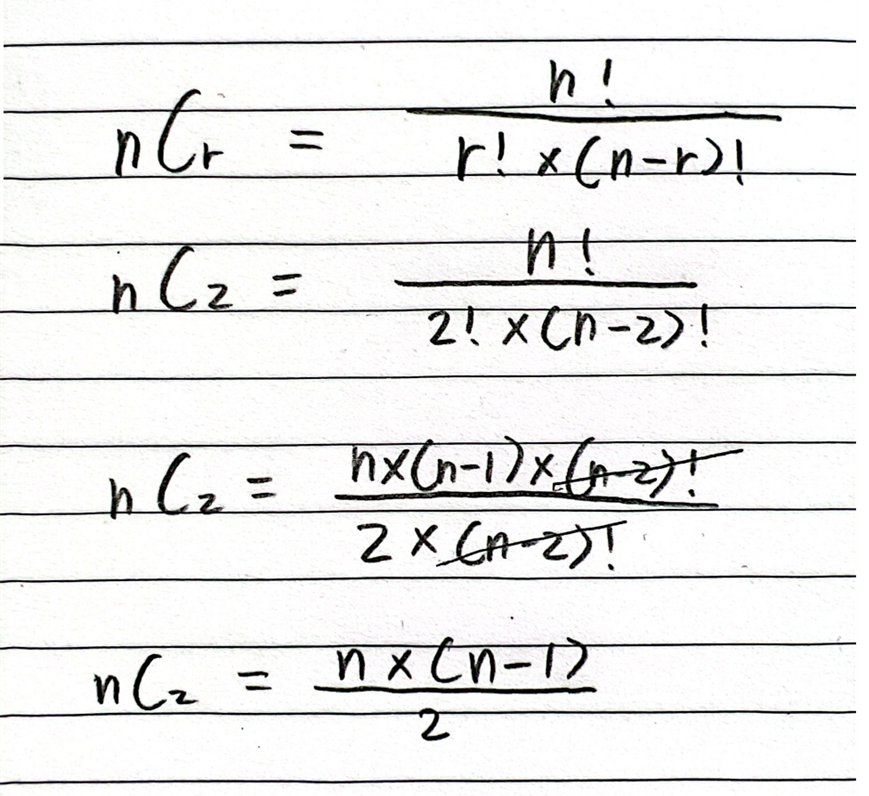 nCr = n! / r! × (n-r)!
nC2 = n! / 2! × (n-2)!
nC2 = n×(n-1)×(n-2)! / 2×(n-2)!
nC2 = n×(n-1) / 2